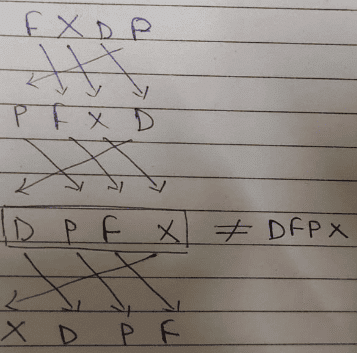 F X D P
P F X D
D P F X ≠ DFPX
X D P F